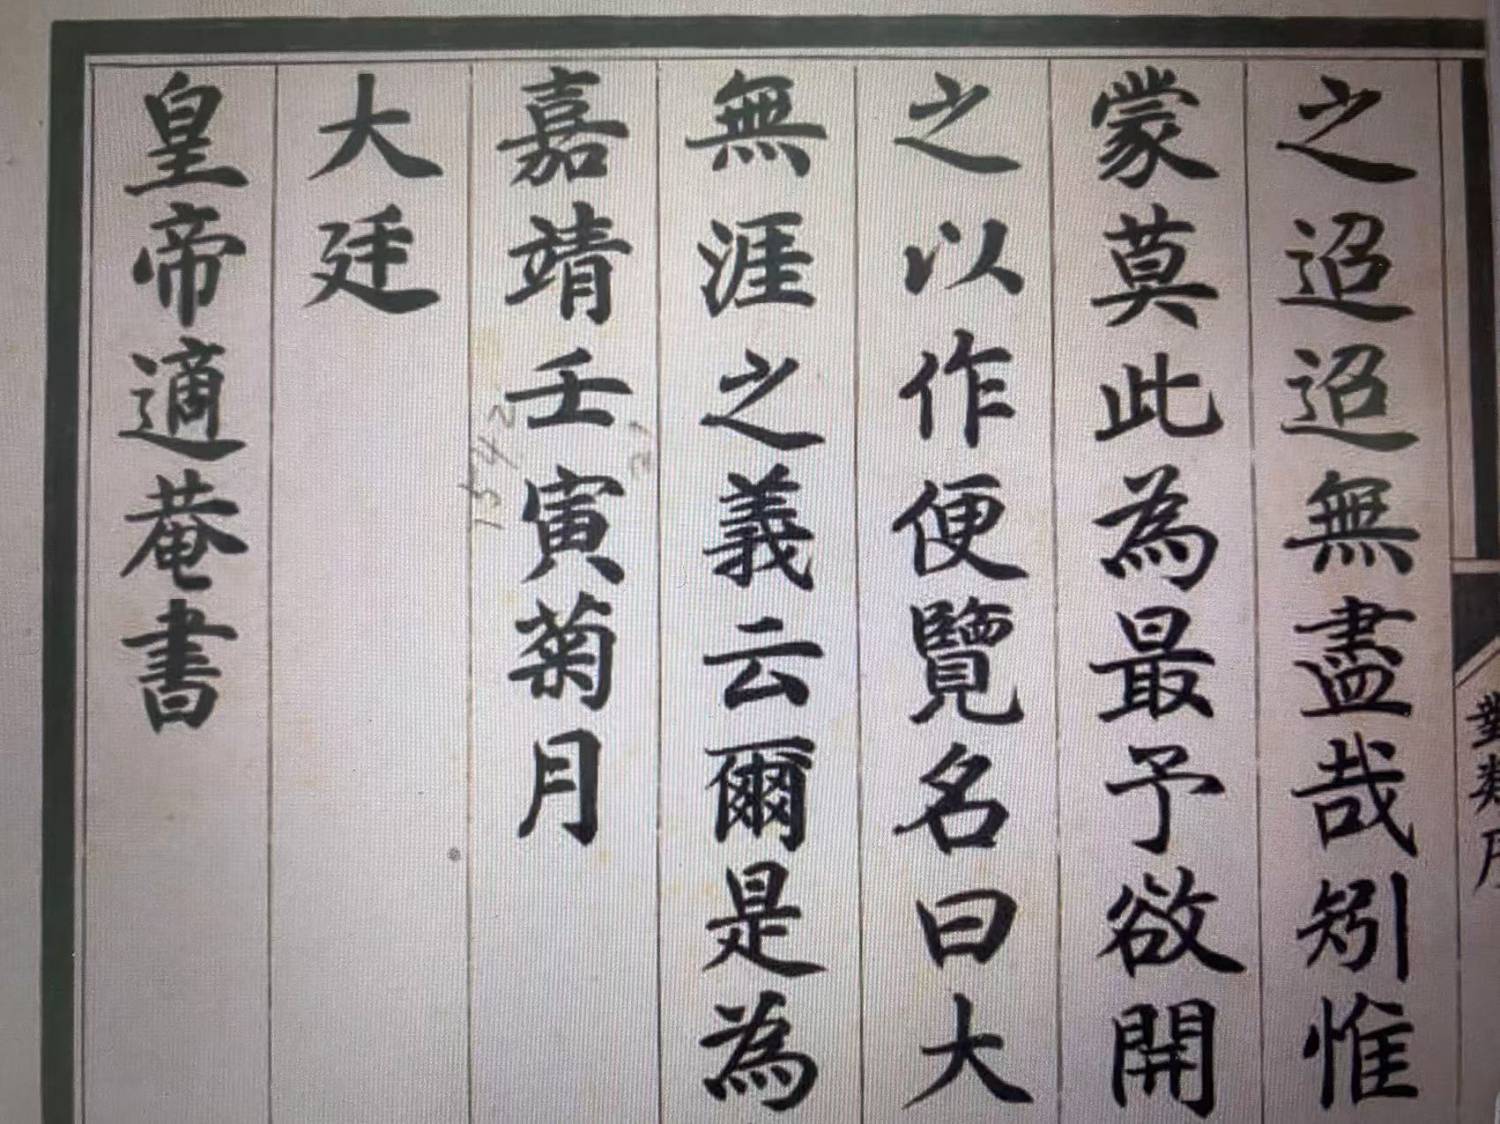 之迢迢無盡哉矧惟
蒙莫此為最予欲開
之以作便覽名曰大
無涯之義云爾是為
嘉靖壬寅菊月
大廷
皇帝適菴書
1542
對類序